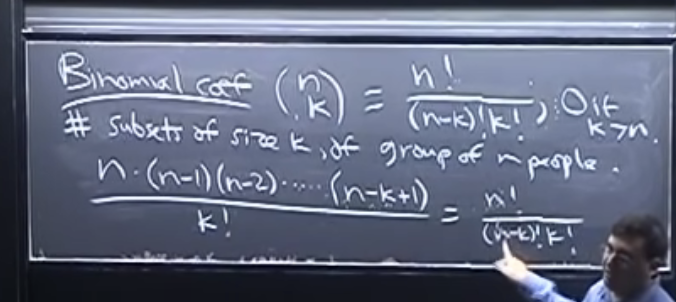 Binomial coef (n k) = n! / (n-k)! k! , 0 if k>n.
# subsets of size k, of group of n people.
n·(n-1)(n-2)·····(n-k+1) / k! = n! / (n-k)! k!